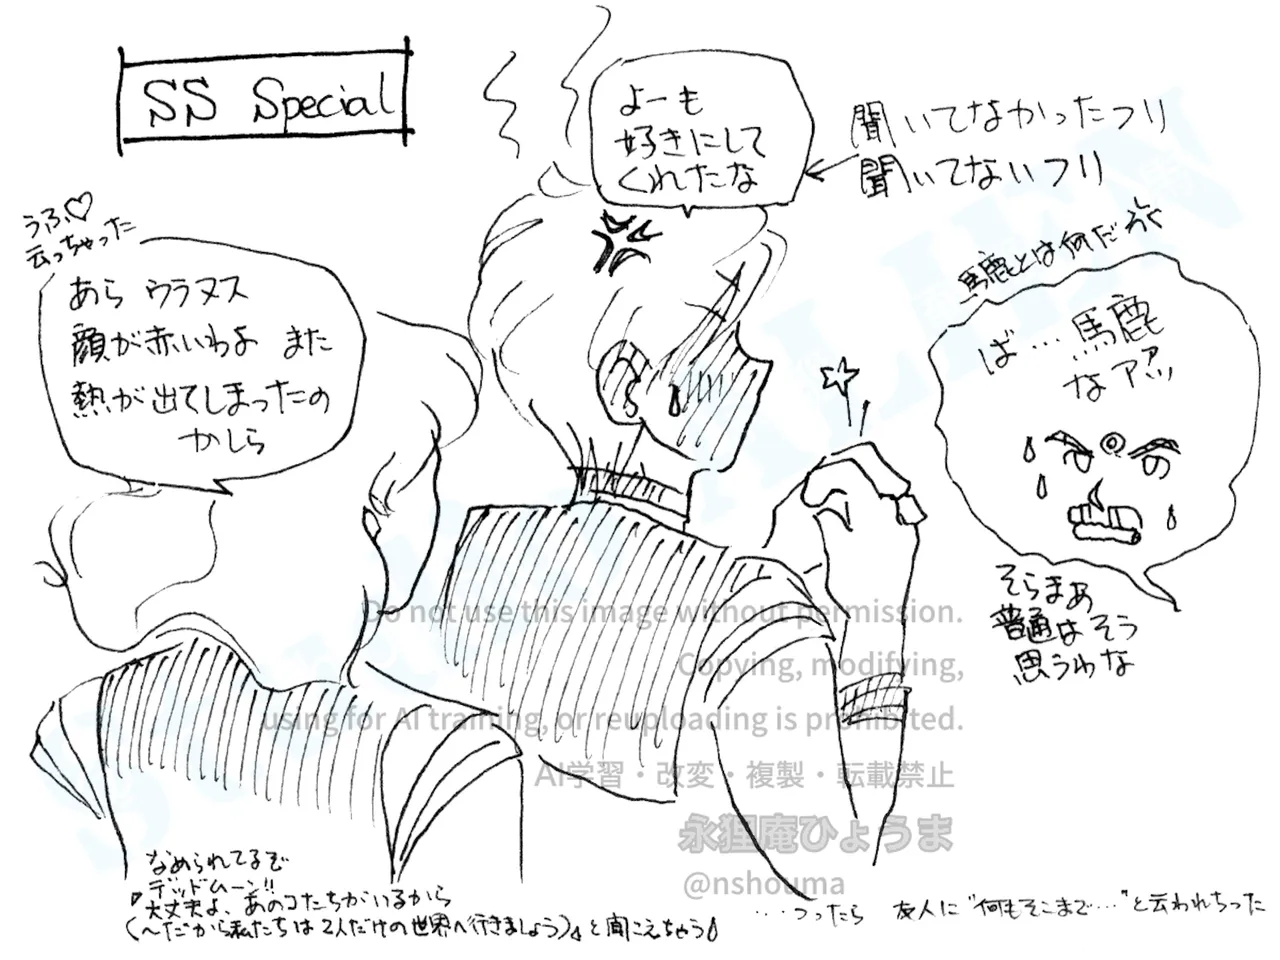 SS Special
よーも
好きにして
くれたな
聞いてなかったフリ
聞いてないフリ
うふ♡
云っちゃった
あら ウラヌス
顔が赤いわよ また
熱が出てしまったの
かしら
馬鹿とは何だ
ば…馬鹿
なアァッ
そらまあ
普通はそう
思うわな
Do not use this image without permission.
Copying, modifying,
using for AI training, or reuploading is prohibited.
AI学習・改変・複製・転載禁止
永狸庵ひょうま
@nshouma
なめられてるぞ
デッドムーン!!
大丈夫よ、あのコたちがいるから
(〜だから私たちは2人だけの世界へ行きましょう)」と聞こえちゃう
...つったら 友人に"何もそこまで…"と云われちった